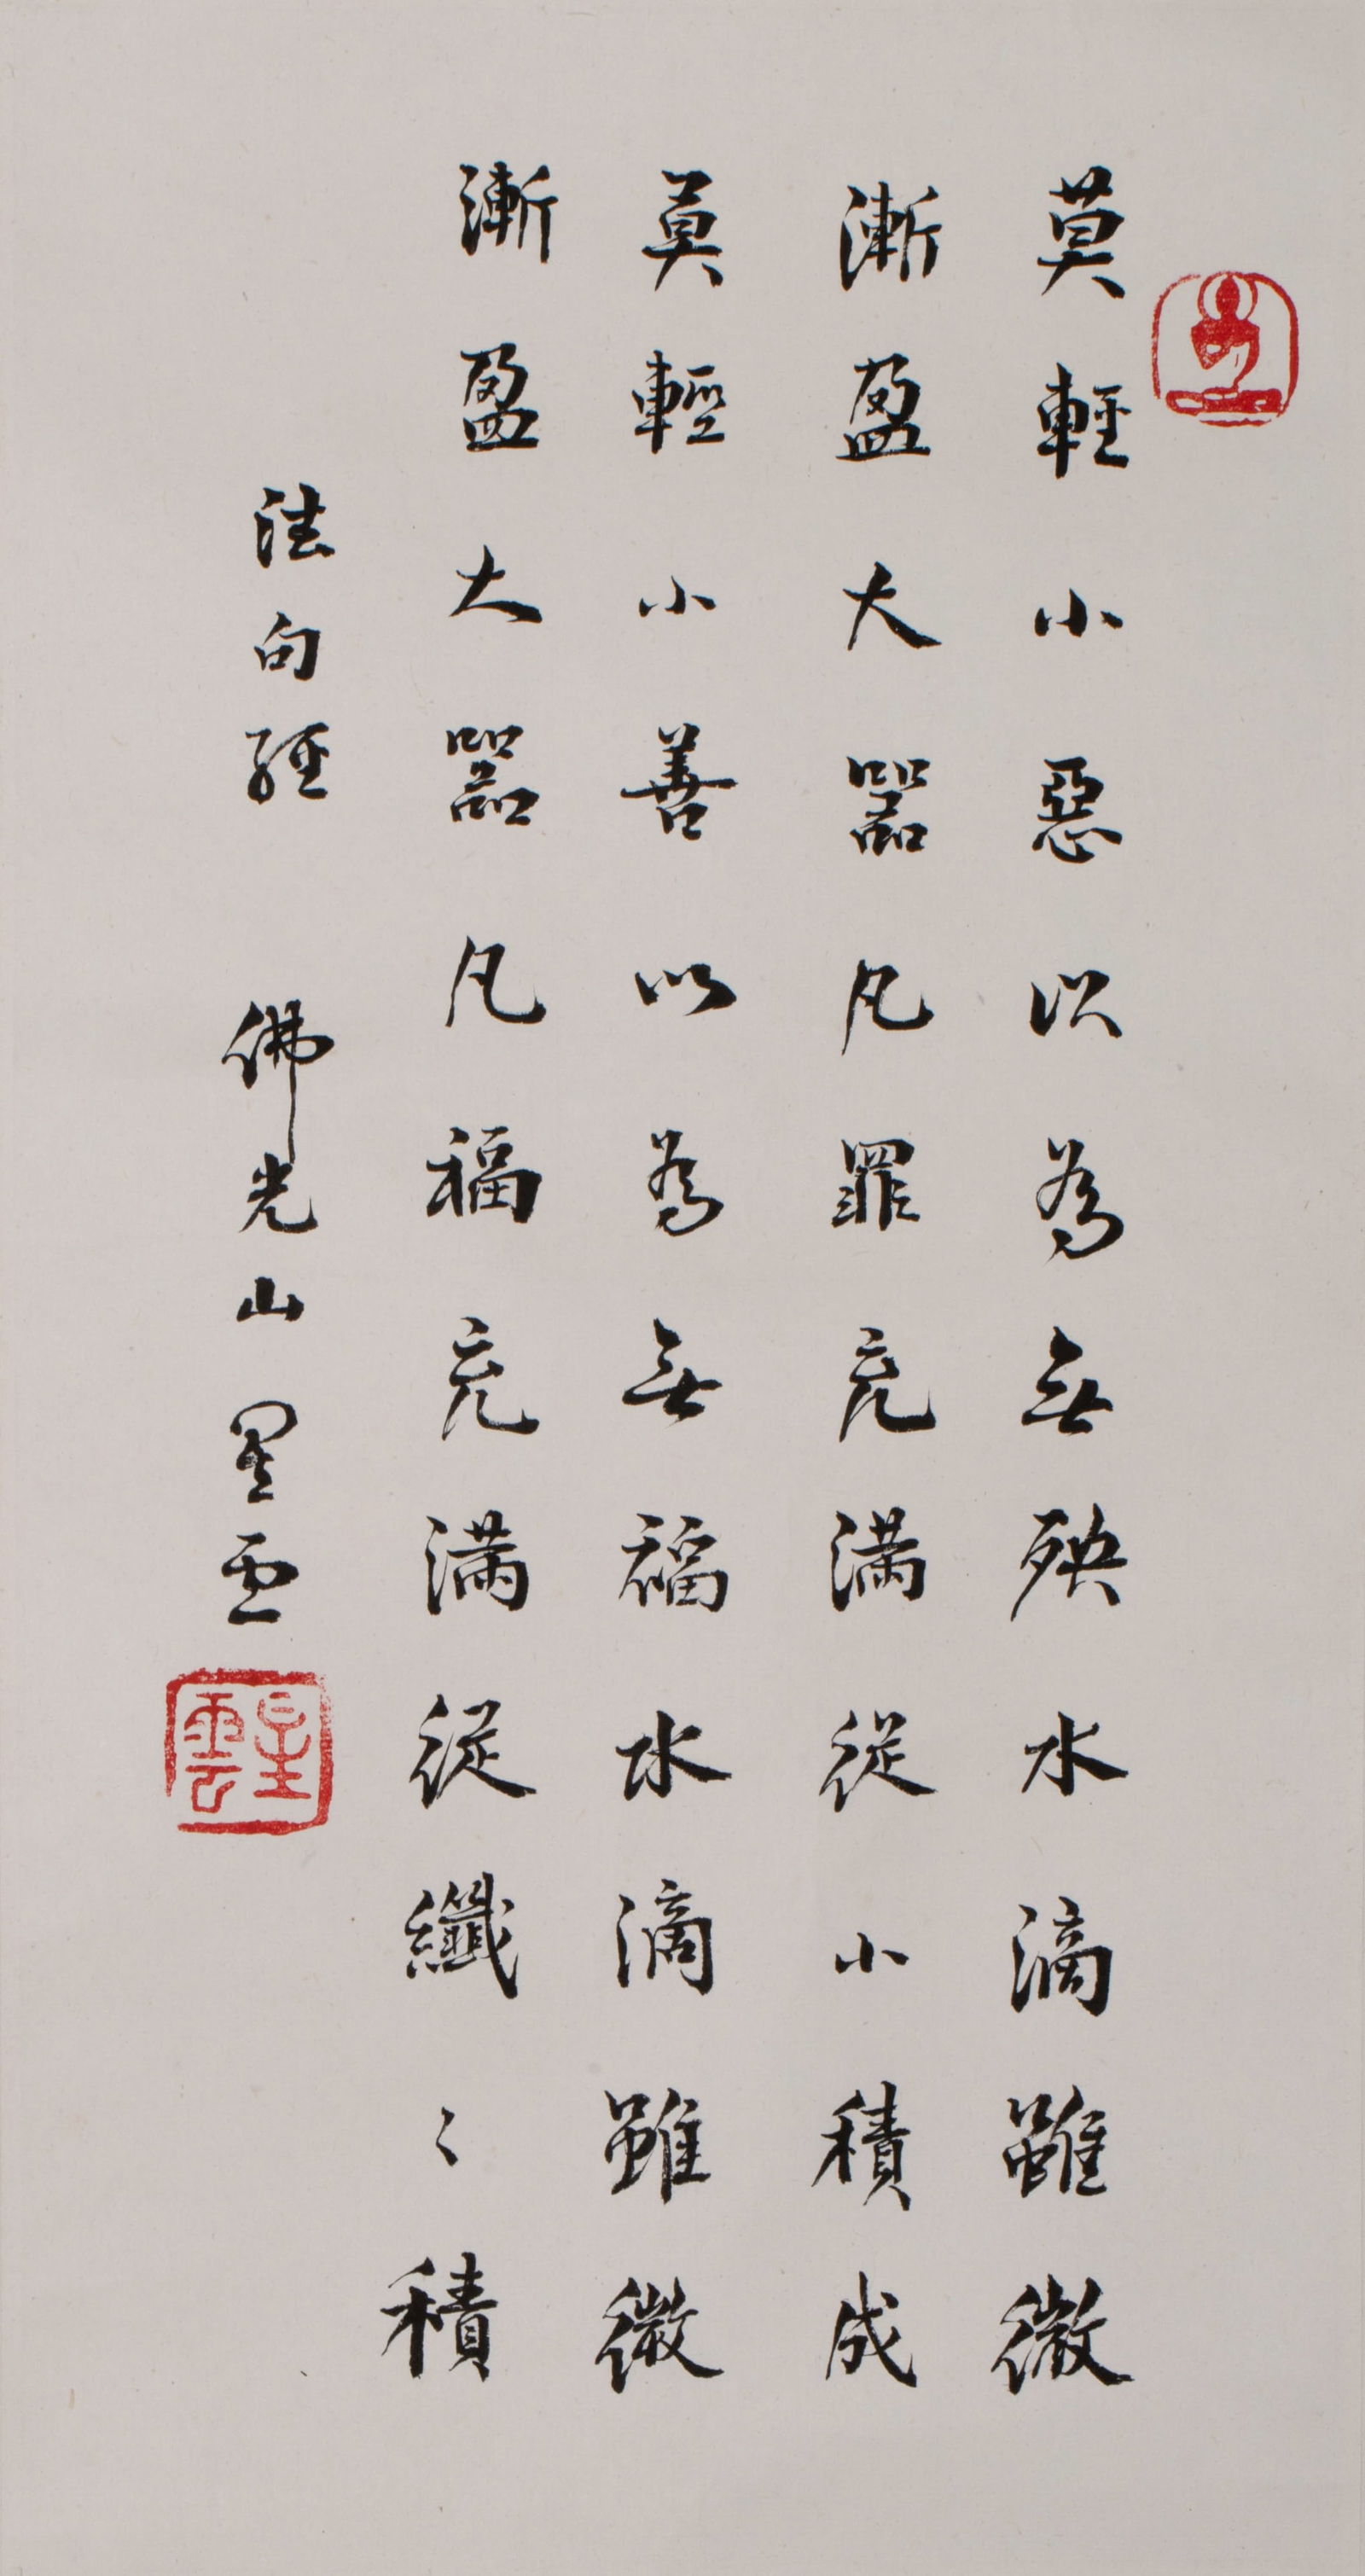 莫輕小惡以為無殃水滴雖微
漸盈大器凡罪充滿從小積成
莫輕小善以為無福水滴雖微
漸盈大器凡福充滿從纖〻積
法句經 佛光山星雲
星雲